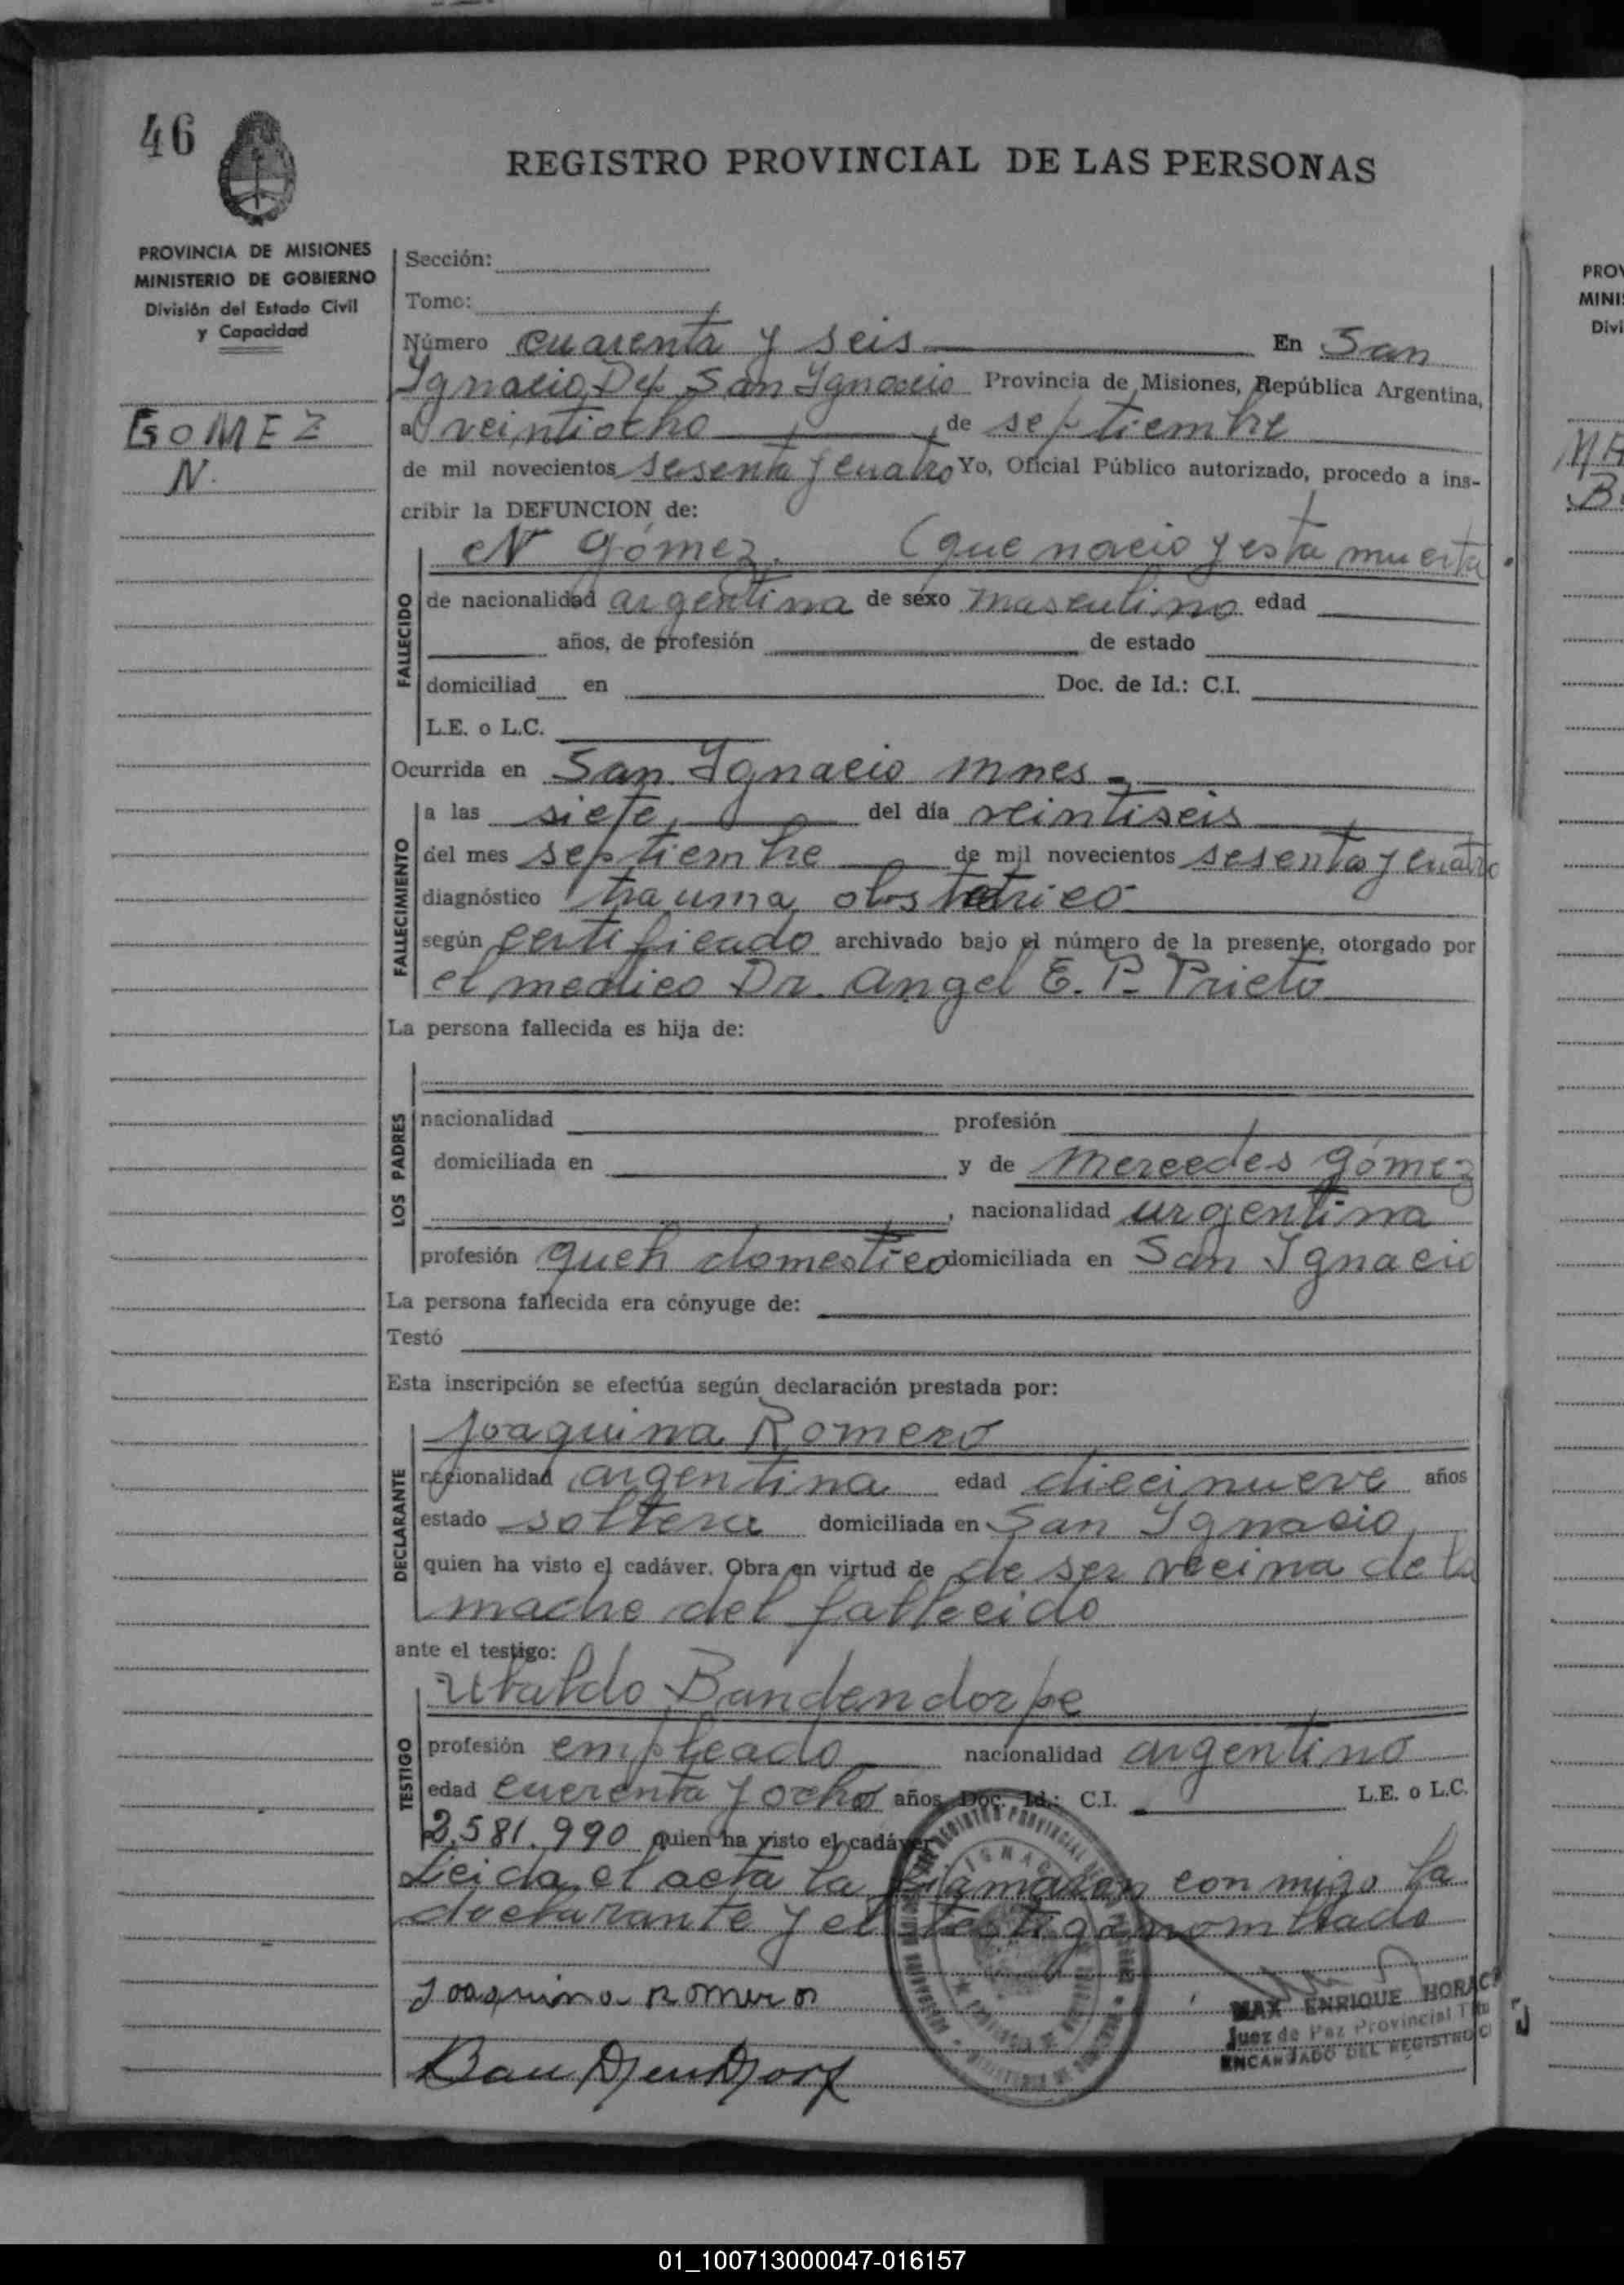 46
REGISTRO PROVINCIAL DE LAS PERSONAS
PROVINCIA DE MISIONES
MINISTERIO DE GOBIERNO
División del Estado Civil
y Capacidad
GOMEZ
N.
Sección:
Tomo:
Número cuarenta y seis En San
Ygnacio Dep. San Ygnacio Provincia de Misiones, República Argentina,
a veintiocho de septiembre
de mil novecientos sesenta y cuatro Yo, Oficial Público autorizado, procedo a ins-
cribir la DEFUNCION de:
N Gómez. (que nacio y esta muerta
FALLECIDO
de nacionalidad argentina de sexo masculino edad
años, de profesión de estado
domiciliad en Doc. de Id.: C.I.
L.E. o L.C.
Ocurrida en San Ygnacio Mnes
FALLECIMIENTO
a las siete del día veintiseis
del mes septiembre de mil novecientos sesenta y cuatro
diagnóstico trauma obstetrico
según certificado archivado bajo el número de la presente, otorgado por
el medico Dr. Angel E. P. Prieto
La persona fallecida es hija de:
LOS PADRES
nacionalidad profesión
domiciliada en y de Mercedes Gómez
, nacionalidad argentina
profesión queh domestico domiciliada en San Ygnacio
La persona fallecida era cónyuge de:
Testó
Esta inscripción se efectúa según declaración prestada por:
DECLARANTE
Joaquina Romero
nacionalidad argentina edad diecinueve años
estado soltera domiciliada en San Ygnacio,
quien ha visto el cadáver. Obra en virtud de de ser vecina de la
madre del fallecido
ante el testigo:
TESTIGO
Ubaldo Bandendorpe
profesión empleado nacionalidad argentino
edad cuerenta y ocho años Doc. Id.: C.I. L.E. o L.C.
2.581.990 quien ha visto el cadáver
Leida el acta la firmaron con migo la
declarante y el testigo nombrado
Joaquina Romero
MAX ENRIQUE HORAC
Juez de Paz Provincial Titu
ENCARGADO DEL REGISTRO CI
PROV
MINIS
Divi
01_100713000047-016157